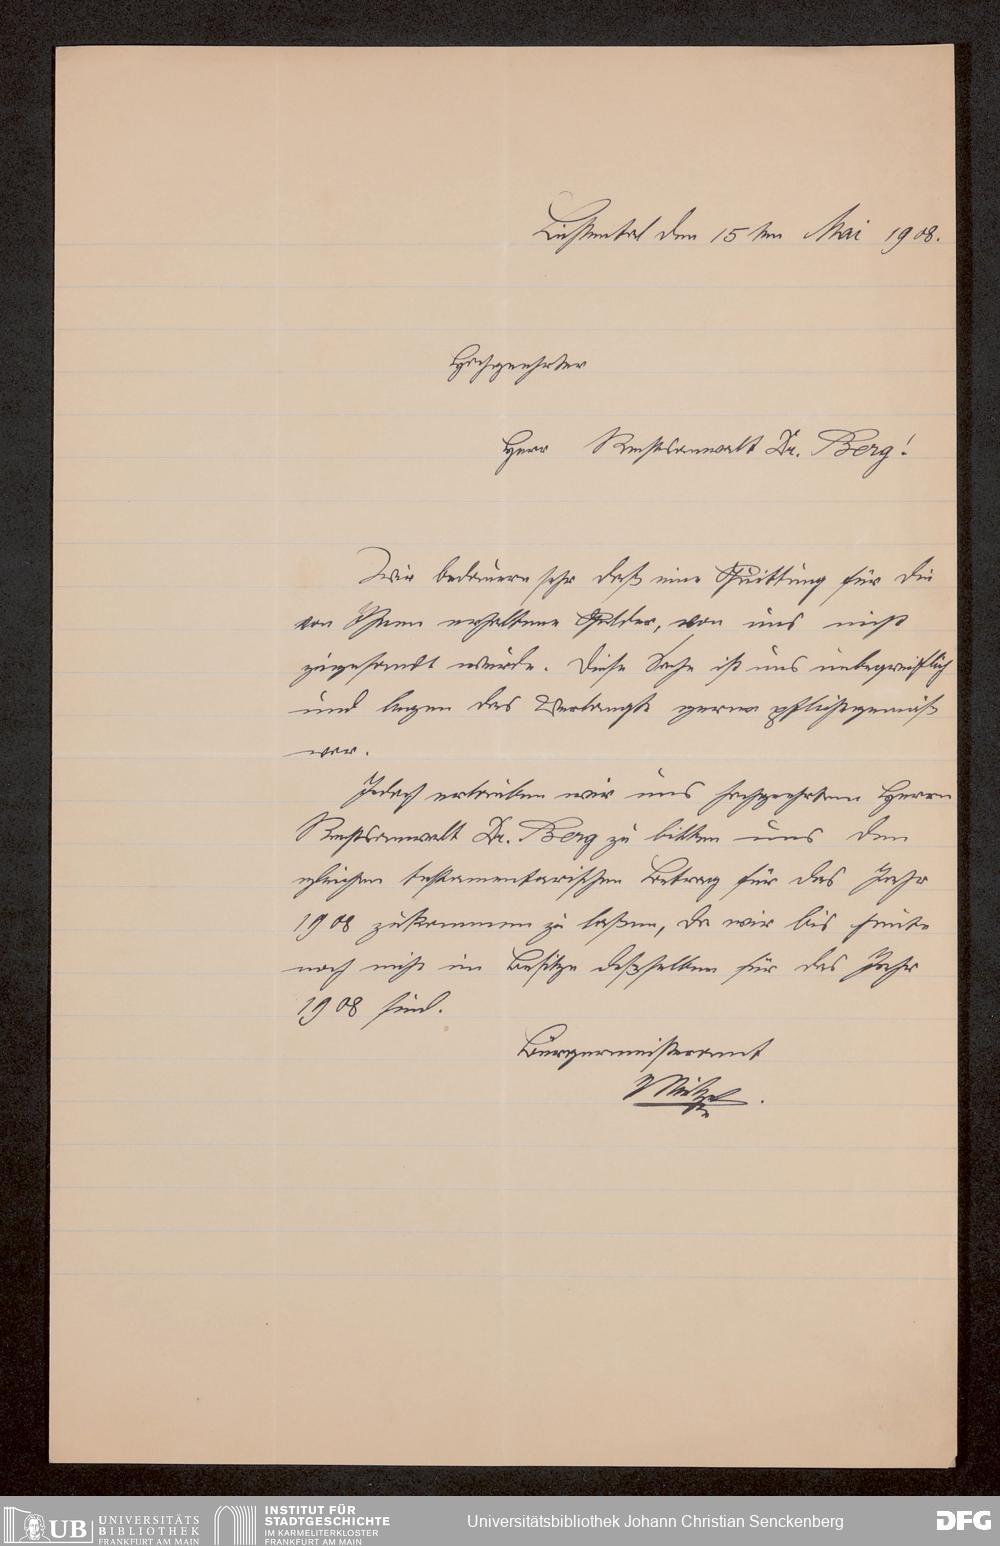 Lichtental den 15ten Mai 1908.
Hochgeehrter
Herr Rechtsanwalt Dr. Berg!
Wir bedauern sehr daß eine Quittung für die
von Ihnen erhaltene Gelder, von uns nicht
zugesandt wurde. Diese Sache ist uns unbegreiflich
und legen das Verlangte gerne pflichtgemäß
vor.
Jedoch erlauben wir uns hochgeehrten Herrn
Rechtsanwalt Dr. Berg zu bitten uns den
gleichen testamentarischen Betrag für das Jahr
1908 zukommen zu laßen, da wir bis heute
noch nicht im Besitze deßselben für das Jahr
1908 sind.
Bürgermeisteramt
UB UNIVERSITÄTS
BIBLIOTHEK
FRANKFURT AM MAIN
INSTITUT FÜR
STADTGESCHICHTE
IM KARMELITERKLOSTER
FRANKFURT AM MAIN
Universitätsbibliothek Johann Christian Senckenberg
DFG